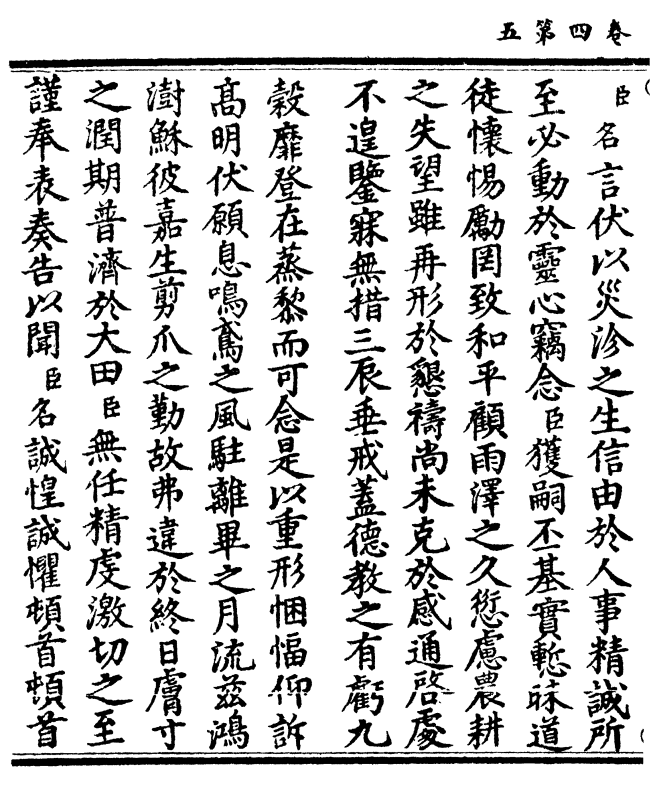 卷四第五
臣名言伏以災沴之生信由於人事精誠所
至必動於靈心竊念臣獲嗣丕基實慙昧道
徒懷惕勵罔致和平顧雨澤之久愆慮農耕
之失望雖再形於懇禱尚未克於感通啓處
不遑鑒寐無措三辰垂戒蓋德教之有虧九
穀靡登在蒸黎而可念是以重形悃愊仰訴
高明伏願息鳴鳶之風駐離畢之月流茲鴻
澍穌彼嘉生剪爪之勤故弗違於終日膚寸
之潤期普濟於大田臣無任精虔激切之至
謹奉表奏告以聞臣名誠惶誠懼頓首頓首